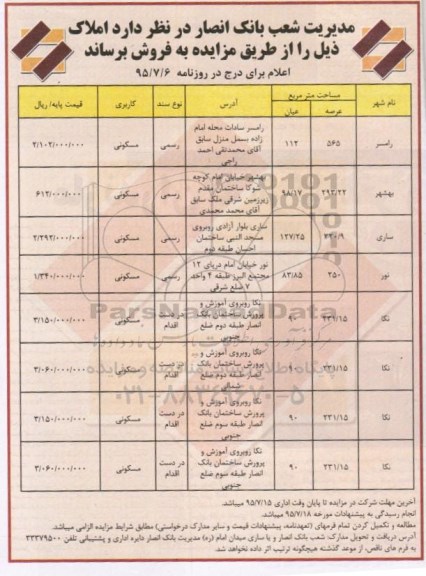 مدیریت شعب بانک انصار در نظر دارد املاک
ذیل را از طریق مزایده به فروش برساند
اعلام برای درج در روزنامه ۹۵/۷/۶
نام شهر مساحت متر مربع آدرس نوع سند کاربری قیمت پایه/ ریال
عرصه عیان
رامسر ۵۶۵ ۱۱۲ رامسر سادات محله امام زاده بسمل منزل سابق آقای محمدتقی احمد راجی رسمی مسکونی ۲/۱۰۲/۰۰۰/۰۰۰
بهشهر ۲۹۲/۲۲ ۹۸/۱۷ بهشهر خیابان امام کوچه شوکا ساختمان مقدم زیرزمین شرقی ملک سابق آقای محمد محمدی رسمی مسکونی ۶۱۲/۰۰۰/۰۰۰
ساری ۲۳۰/۹ ۱۲۷/۲۵ ساری بلوار آزادی روبروی مسجد النبی ساختمان احسان طبقه دوم رسمی مسکونی ۲/۲۹۲/۰۰۰/۰۰۰
نور ۲۵۰ ۸۳/۸۵ نور خیابان امام دریای ۱۲ مجتمع البرز طبقه ۴ واحد ۷ ضلع شرقی رسمی مسکونی ۱/۳۴۰/۰۰۰/۰۰۰
نکا ۲۳۱/۱۵ ۹۰ نکا روبروی آموزش و پرورش ساختمان بانک انصار طبقه دوم ضلع جنوبی در دست اقدام مسکونی ۳/۱۵۰/۰۰۰/۰۰۰
نکا ۲۳۱/۱۵ ۹۰ نکا روبروی آموزش و پرورش ساختمان بانک انصار طبقه دوم ضلع شمالی در دست اقدام مسکونی ۳/۰۶۰/۰۰۰/۰۰۰
نکا ۲۳۱/۱۵ ۹۰ نکا روبروی آموزش و پرورش ساختمان بانک انصار طبقه سوم ضلع جنوبی در دست اقدام مسکونی ۳/۱۵۰/۰۰۰/۰۰۰
نکا ۲۳۱/۱۵ ۹۰ نکا روبروی آموزش و پرورش ساختمان بانک انصار طبقه سوم ضلع جنوبی در دست اقدام مسکونی ۳/۰۶۰/۰۰۰/۰۰۰
آخرین مهلت شرکت در مزایده تا پایان وقت اداری ۹۵/۷/۱۵ میباشد.
انجام رسیدگی به پیشنهادات مورخه ۹۵/۷/۱۸ میباشد.
مطالعه و تکمیل کردن تمام فرمهای (تعهدنامه، پیشنهادات قیمت و سایر مدارک درخواستی) مطابق شرایط مزایده الزامی میباشد.
آدرس دریافت و تحویل مدارک: شعب بانک انصار و یا ساری میدان امام (ره) مدیریت بانک انصار دایره اداری و پشتیبانی تلفن ۳۳۳۷۹۵۰۰
به فرم های ناقص، از موعد گذشته هیچگونه ترتیب اثر داده نخواهد شد.
ParsNamadData